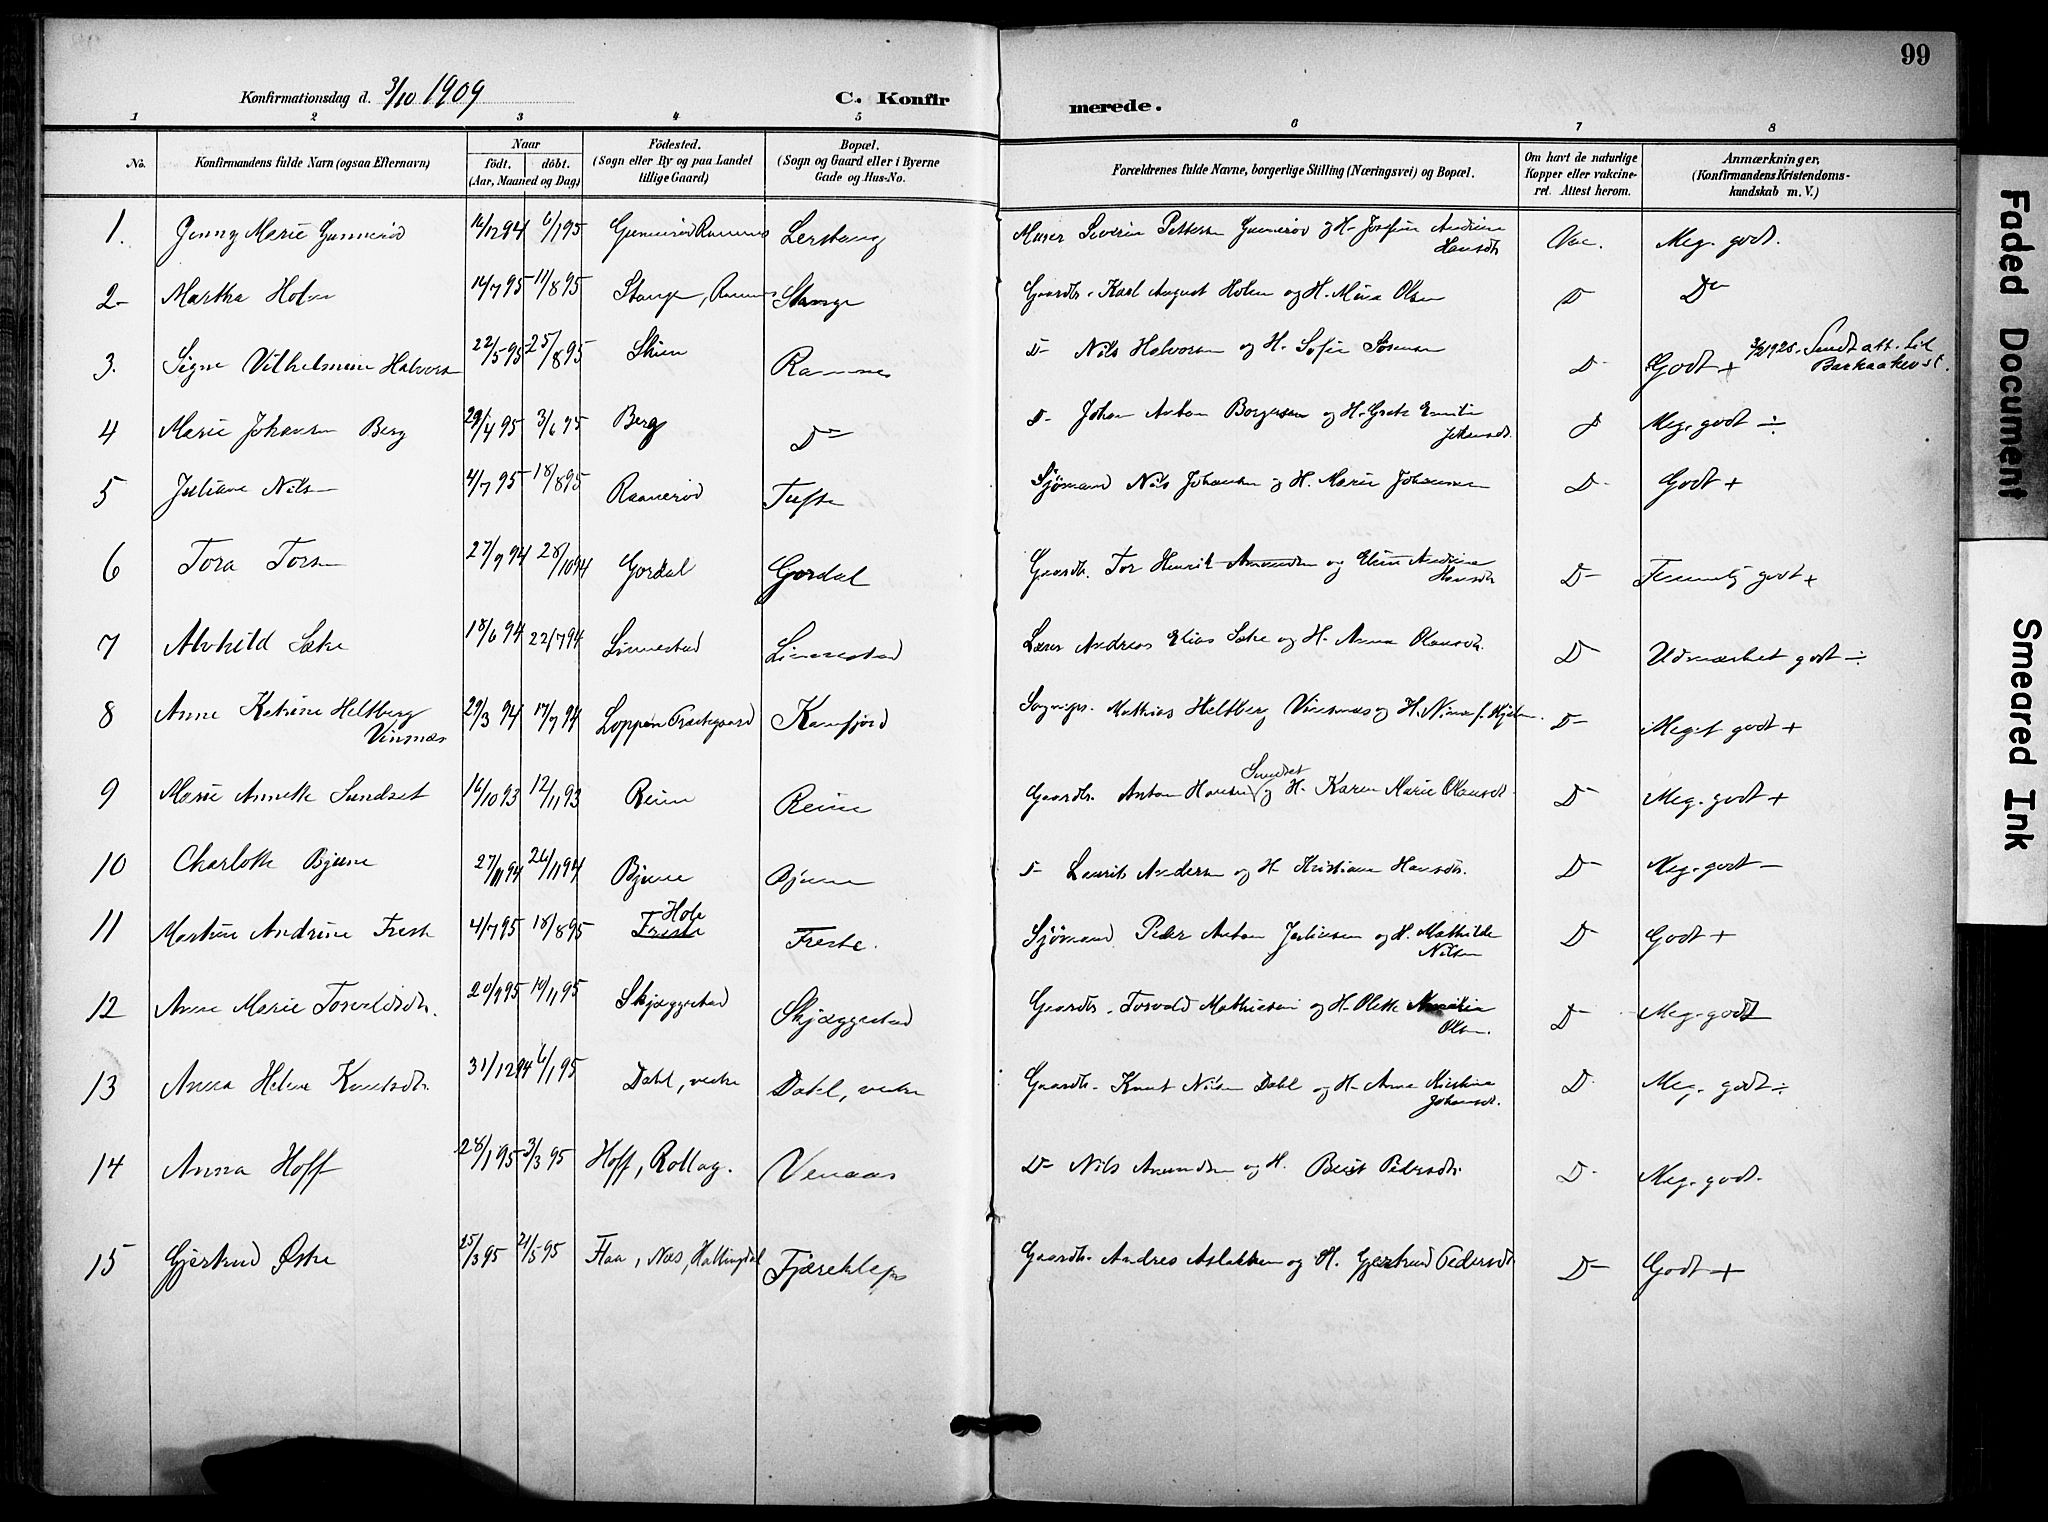 99
Konfirmationsdag d. 3/10 1909
C. Konfirmerede.
1 2 3 4 5 6 7 8
No. Konfirmandens fulde Navn (ogsaa Efternavn) Naar født. døbt. (Aar, Maaned og Dag) Fødested. (Sogn eller By og paa Landet tillige Gaard) Bopæl. (Sogn og Gaard eller i Byerne Gade og Hus-No. Forældrenes fulde Navne, borgerlige Stilling (Næringsvei) og Bopæl. Om havt de naturlige Kopper eller vakcineret. Attest herom. Anmærkninger, (Konfirmandens Kristendomskundskab m. V.)
1. Jenny Marie Gunnerød 16/12 94 6/1 95 Gunnerød Ramnes Lerstang Murer Severin Pettersen Gunnerød og H. Josefine Andrine Hansdt. Vac. Meg. godt.
2- Martha Holm 14/7 95 11/8 95 Stange, Ramnes Stange Gaardb. Karl August Holm og H. Mina Olsen D D-
3. Signe Vilhelmine Halvorsen 22/5 95 25/8 95 Skien Ramnes D- Nils Halvorsen og H. Sofie D- Godt + 1925. Sendt att. til
4 Marie Johansen Berg 29/4 95 3/6 95 Berg D- D- Johan Anton Borgersen og H. Grete Emilie Johansdt. D Meg. godt ÷
5 Juliane Nilsen 4/7 95 18/8 95 Ramnerød Tufte Sjømand Nils Johansen og H. Marie Johansen D- Godt +
6 Tora Torsen 27/9 94 28/10 94 Gordal Gordal Gaardb. Tor Henrik Amundsen og Elise Andrine Hansdt. D- Temmelig godt +
7 Alvhild Sæke 18/6 94 22/7 94 Linnestad Linnestad Lærer Andreas Elias Sæke og H. Anna Olausdt. D- Udmærket godt ÷
8 Anne Katrine Heltberg Vinsnæs 29/3 94 17/7 94 Loppen Præstegaard Kamfjord Sognepr. Mathias Heltberg Vinsnæs og H. Nina f. D- Meget godt +
9 Marie Annette Sundset 16/10 93 12/11 93 Reine Reine Gaardb. Anton Hansen Sundset og H. Karen Marie Olausdt. D- Meg. godt +
10 Charlotte Bjune 27/ 94 26/11 94 Bjune Bjune D- Laurits Andersen og H. Kristiane Hansdt. D- Meg. godt -
11 Martine Andrine Freste 4/7 95 18/8 95 Freste Hole Freste. Sjømand Peder Anton Juliusen og H. Mathilde Nilsen D- Godt +
12 Anne Marie Torvaldsdt. 20/9 95 10/11 95 Skjæggestad Skjæggestad Gaardb. Torvald Mathiesen og H. Olette Olsen. D- Meg. godt
13 Anna Helene Knutsdt. 31/12 94 6/1 95 Dahl, vestre Dahl, vestre Gaardb. Knut Nilsen Dahl og H. Anne Kirstine Johansdt. D- Meg. godt ÷
14 Anna Hoff 28/1 95 3/3 95 Hoff, Rollag. Venaas D- Nils Amundsen og H. Berit Pedersdt. D- Meg. godt.
15 Gjertrud Østre 25/3 95 21/5 95 Flaa, Næs, Hallingdal Fjæreklep Gaardb. Andres Aslaksen og H. Gjertrud Pedersdt D- Godt +
Faded Document
Smeared Ink